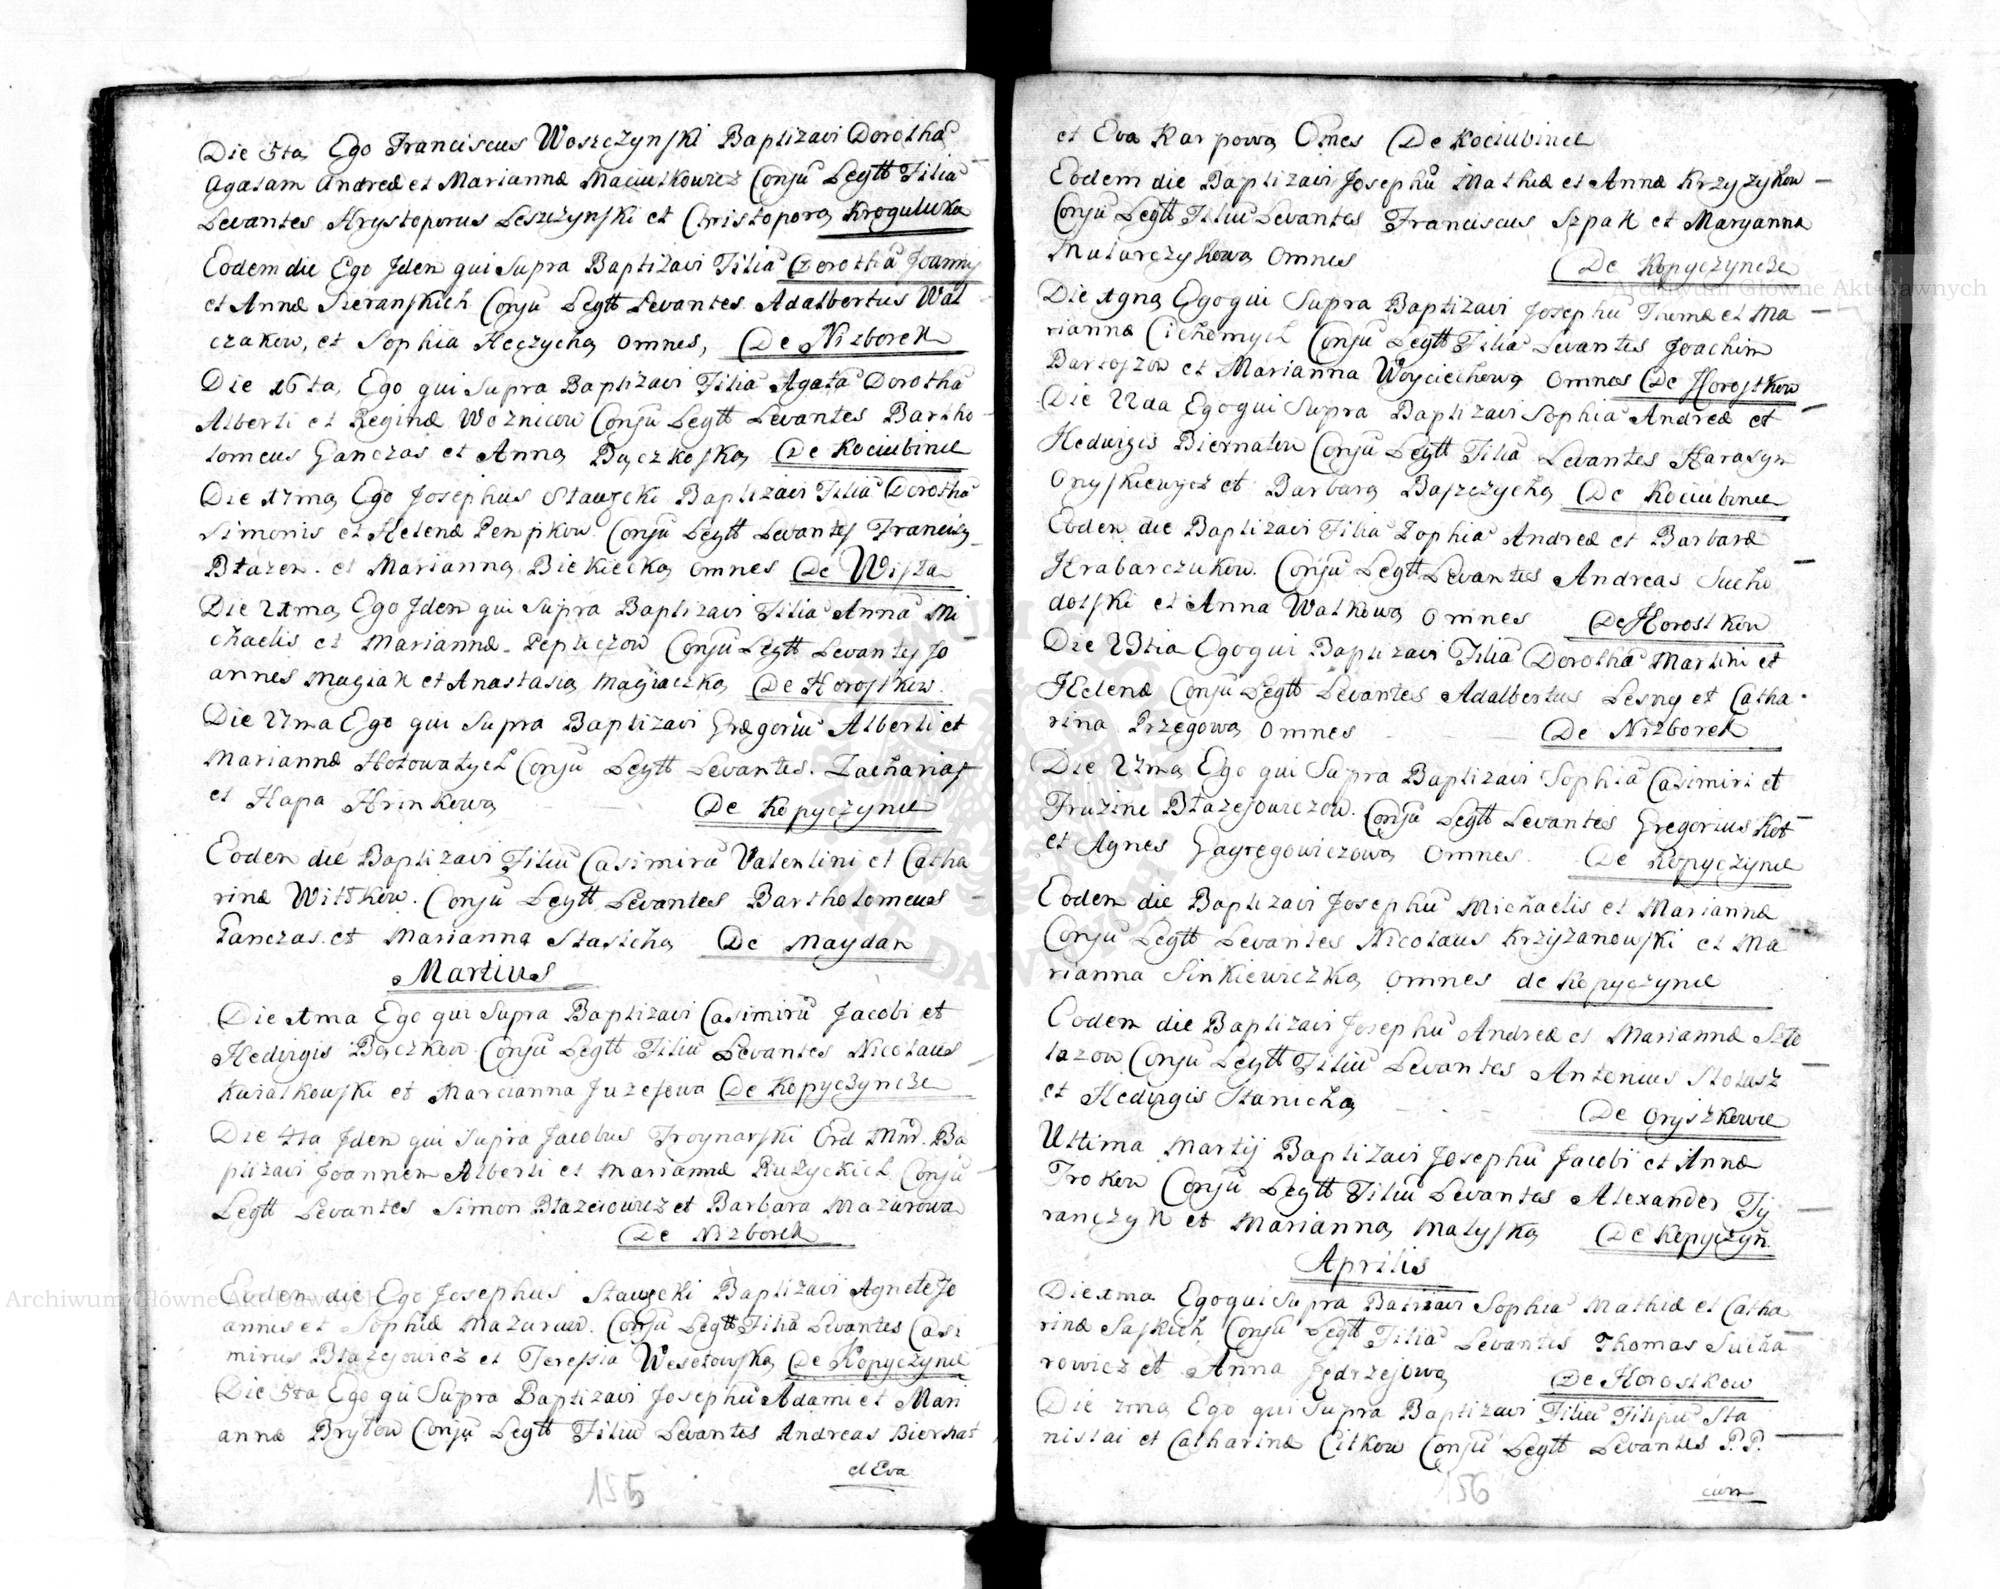 Die 5ta Ego Franciscus Woszczynski Baptizavi Dorothā
Agatam Andreæ et Mariannæ Maciutkowicz Conjū Legtt Filiā
Levantes Krystoporus Leszczynski et Christopora Kroguluka
Eodem die Ego Jden qui Supra Baptizavi Filiā Dorothā Joannis
et Annæ Szeranskich Conjū Legtt Levantes Adalbertus Wal
czakow, et Sophia Kęczycha omnes, De Nizborek
Die 16ta, Ego qui Supra Baptizavi Filiā Agatā Dorothā
Alberti et Reginæ Woznicow Conjū Legtt Levantes Bartho
lomeus Ganczas et Anna Bączkoska De Kociubinie
Die 17ma Ego Josephus Stawecki Baptizavi Filiā Dorothā
Simonis et Helenæ Pempkow Conjū Legtt Levantes Francisq
Błazen. et Marianna Biekiecka omnes De Wista
Die 21ma Ego Jden qui Supra Baptizavi Filiā Annā Mi
chaelis et Mariannæ Pepliczow Conjū Legtt Levantes Jo
annes Magiak et Anastasia Magiaczka De Horostkow.
Die 27ma Ego qui Supra Baptizavi Grægoriū Alberti et
Mariannæ Hołowatych Conjū Legtt Levantes. Zacharias
et Hapa Hrinkowa De Kopyczynie
Eoden die Baptizavi Filiū Casimirū Valentini et Catha
rinæ Witkow. Conjū Legtt Levantes Bartholomeus
Ganczas. et Marianna Stasicha De Maydan
Martius
Die 1ma Ego qui Supra Baptizavi Casimirū Jacobi et
Hedvigis Bączkow Conjū Legtt Filiū Levantes Nicolaus
Kwiatkowski et Marcianna Juzefowa De Kopyczyncze
Die 4ta Jden qui Supra Jacobus Troynarski Ord Mnr. Ba
ptizavi Joannem Alberti et Mariannæ Ruzyckich Conjū
Legtt Levantes Simon Błazeiowicz et Barbara Mazurowa
De Nizborek
Eoden die Ego Josephus Stawecki Baptizavi Agnete Jo
annis et Sophiæ Mazurow. Conjū Legtt Filiā Levantes Casi
mirus Błazejowicz et Teressia Wesołowska De Kopyczynie
Die 5ta Ego qui Supra Baptizavi Josephū Adami et Mari
annæ Bryłow Conjū Legtt Filiū Levantes Andreas Biernat
et Eva
155
et Eva Karpowa Omes De Kociubince
Eodem die Baptizavi Josephū Mathiæ et Annæ Krzyzykow
Conjū Legtt Filiū Levantes Franciscus Szpak et Maryanna
Mularczykowa Omnes De Kopyczyncze
Die 19na Ego qui Supra Baptizavi Josephū Thomæ et Ma
riannæ Cichemych Conjū Legtt Filiā Levantes Joachim
Bartoszow et Marianna Woyciechowa omnes De Horostkow
Die 22da Ego qui Supra Baptizavi Sophiā Andreæ et
Hedvigis Biernatow Conjū Legtt Filiā Levantes Harasyn
Onyskiewycz et Barbara Baszczycha De Kociubinie
Eoden die Baptizavi Filiā Zophiā Andreæ et Barbaræ
Hrabarczukow. Conjū Legtt Levantes Andreas Sucho
dolski et Anna Walkowa omnes De Horostkow
Die 23tia Ego qui Baptizavi Filiā Dorothā Martini et
Helenæ Conjū Legtt Levantes Adalbertus Lesny et Catha
rina Przegowa omnes De Nizborek
Die 27ma Ego qui Supra Baptizavi Sophiā Casimiri et
Fruzine Błazejowiczow. Conjū Legtt Levantes Gregorius Kot
et Agnes Gagregowiczowa omnes. De Kopyczynie
Eoden die Baptizavi Josephū Michaelis et Mariannæ
Conjū Legtt Levantes Nicolaus Krzyzanowski et Ma
rianna Sinkiewiczka omnes de Kopyczynie
Eoden die Baptizavi Josephū Andreæ et Mariannæ Szto
lazow Conjū Legtt Filiū Levantes Antonius Stolasz
et Hedvigis Stanicha De Oryszkowce
Ultima Martij Baptizavi Josephū Jacobi et Annæ
Trokow Conjū Legtt Filiū Levantes Alexander Ty
ranczyk et Marianna Matyska De Kopyczyn
Aprilis
Die 1ma Ego qui Supra Batizavi Sophiā Mathiæ et Catha
rinæ Saskich Conjū Legtt Filiā Levantes Thomas Sucha
rowicz et Anna Jędrzejowa De Horostkow
Die 7ma Ego qui Supra Baptizavi Filiū Filipū Sta
nislai et Catharinæ Citkow Conjū Legtt Levantes P.P.
cum
156
Archiwum Główne Akt Dawnych
Archiwum Główne Akt Dawnych